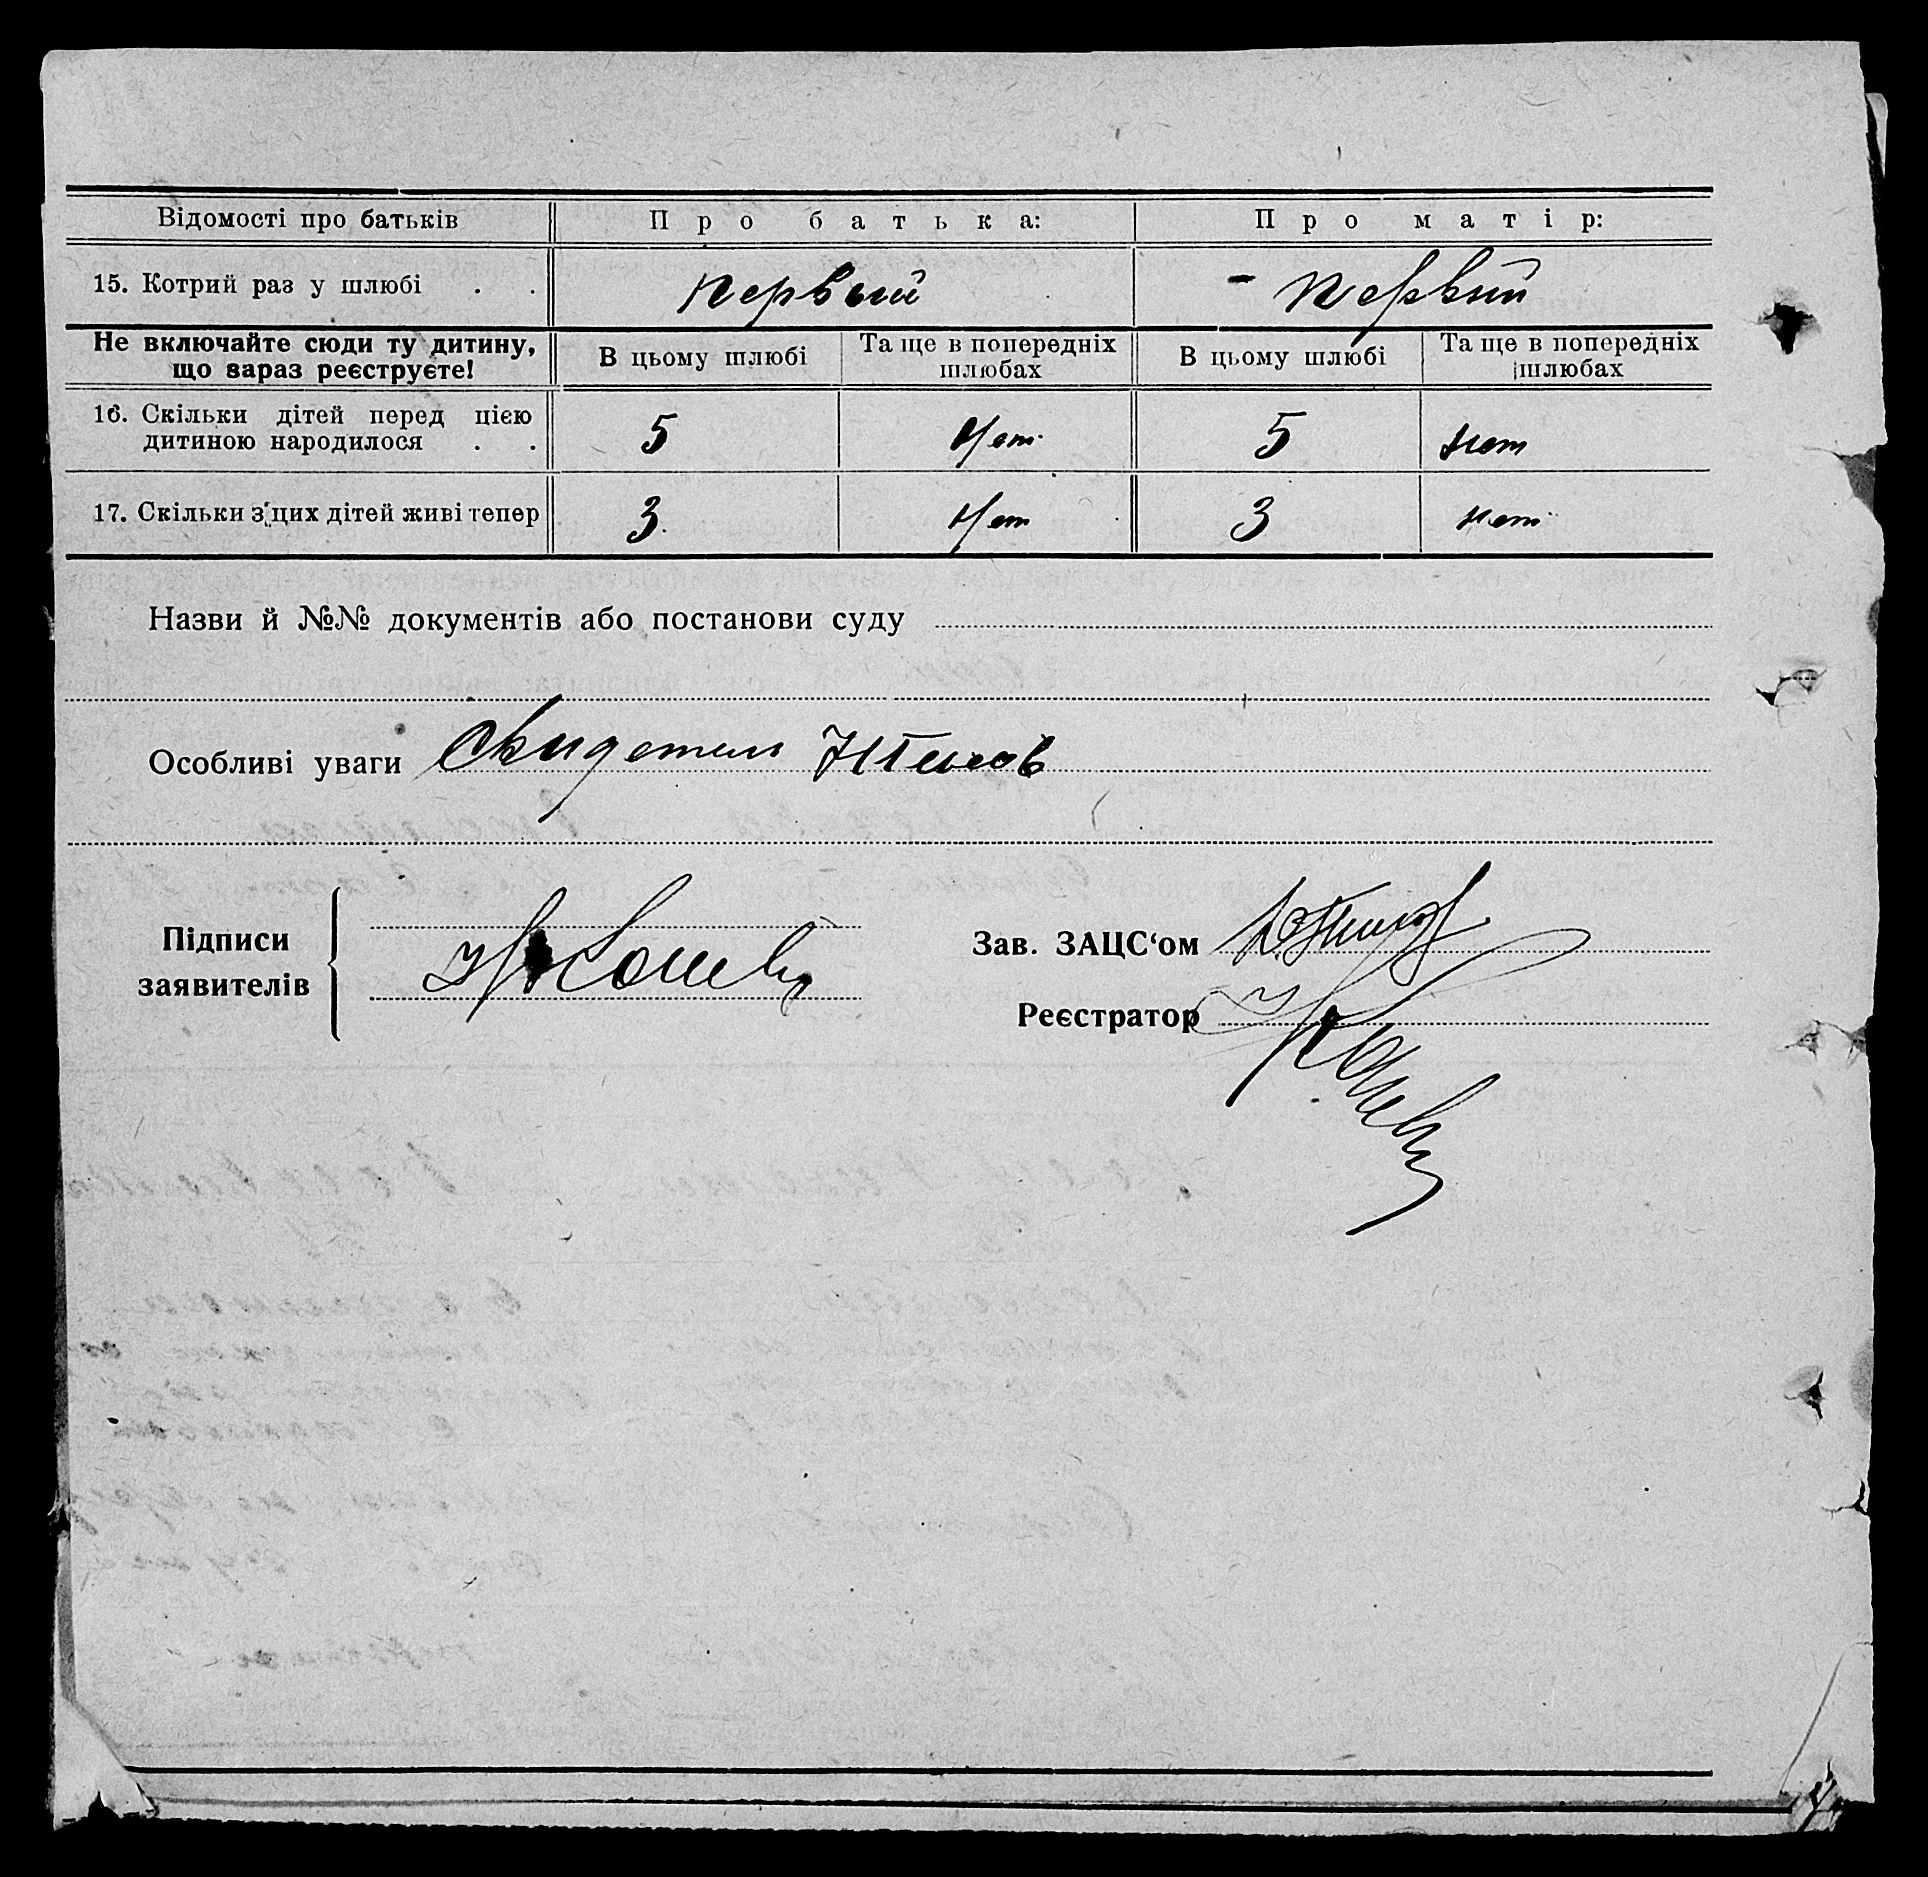 Відомості про батьків Про батька: Про матір:
15. Котрий раз у шлюбі . . первый - первый
Не включайте сюди ту дитину, що зараз реєструєте! В цьому шлюбі Та ще в попередніх шлюбах В цьому шлюбі Та ще в попередніх шлюбах
16. Скільки дітей перед цією
дитиною народилося . . 5 нет 5 нет
17. Скільки з цих дітей живі тепер 3 нет 3 нет
Назви й №№ документів або постанови суду
Особливі уваги Свидетель
Підписи
заявителів
Зав. ЗАЦС‘ом
Реєстратор